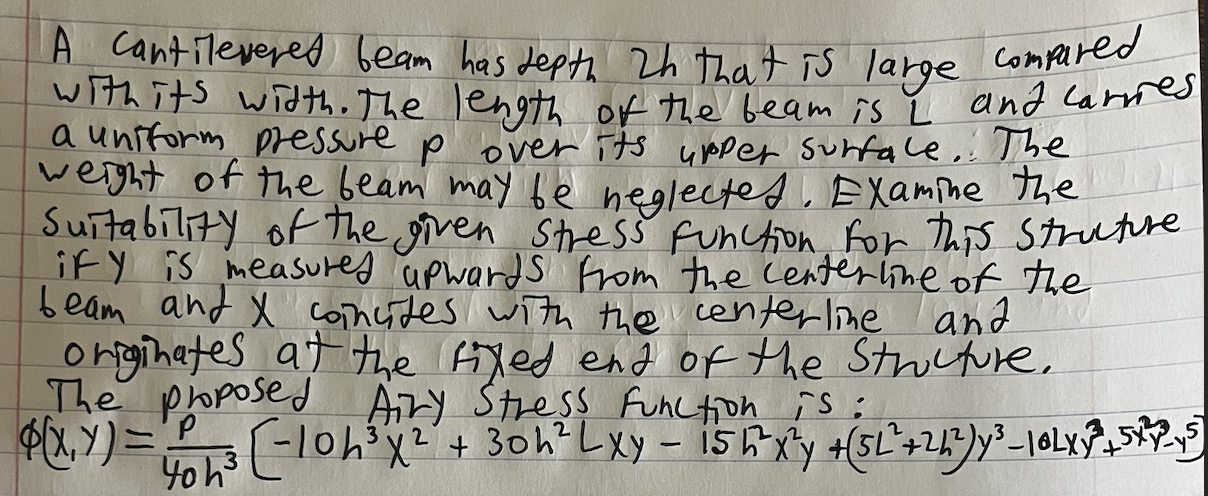 A cantilevered beam has depth 2h that is large compared
with its width. The length of the beam is L and carries
a uniform pressure p over its upper surface. The
weight of the beam may be neglected. Examine the
suitability of the given stress function for this structure
if y is measured upwards from the centerline of the
beam and x coincides with the centerline and
originates at the fixed end of the structure.
The proposed Airy Stress function is:
φ(x,y) = p/40h³ [-10h³x² + 30h²Lxy - 15h²x²y + (5L²+2h²)y³ - 10Lxy³ + 5x²y³ - y⁵]